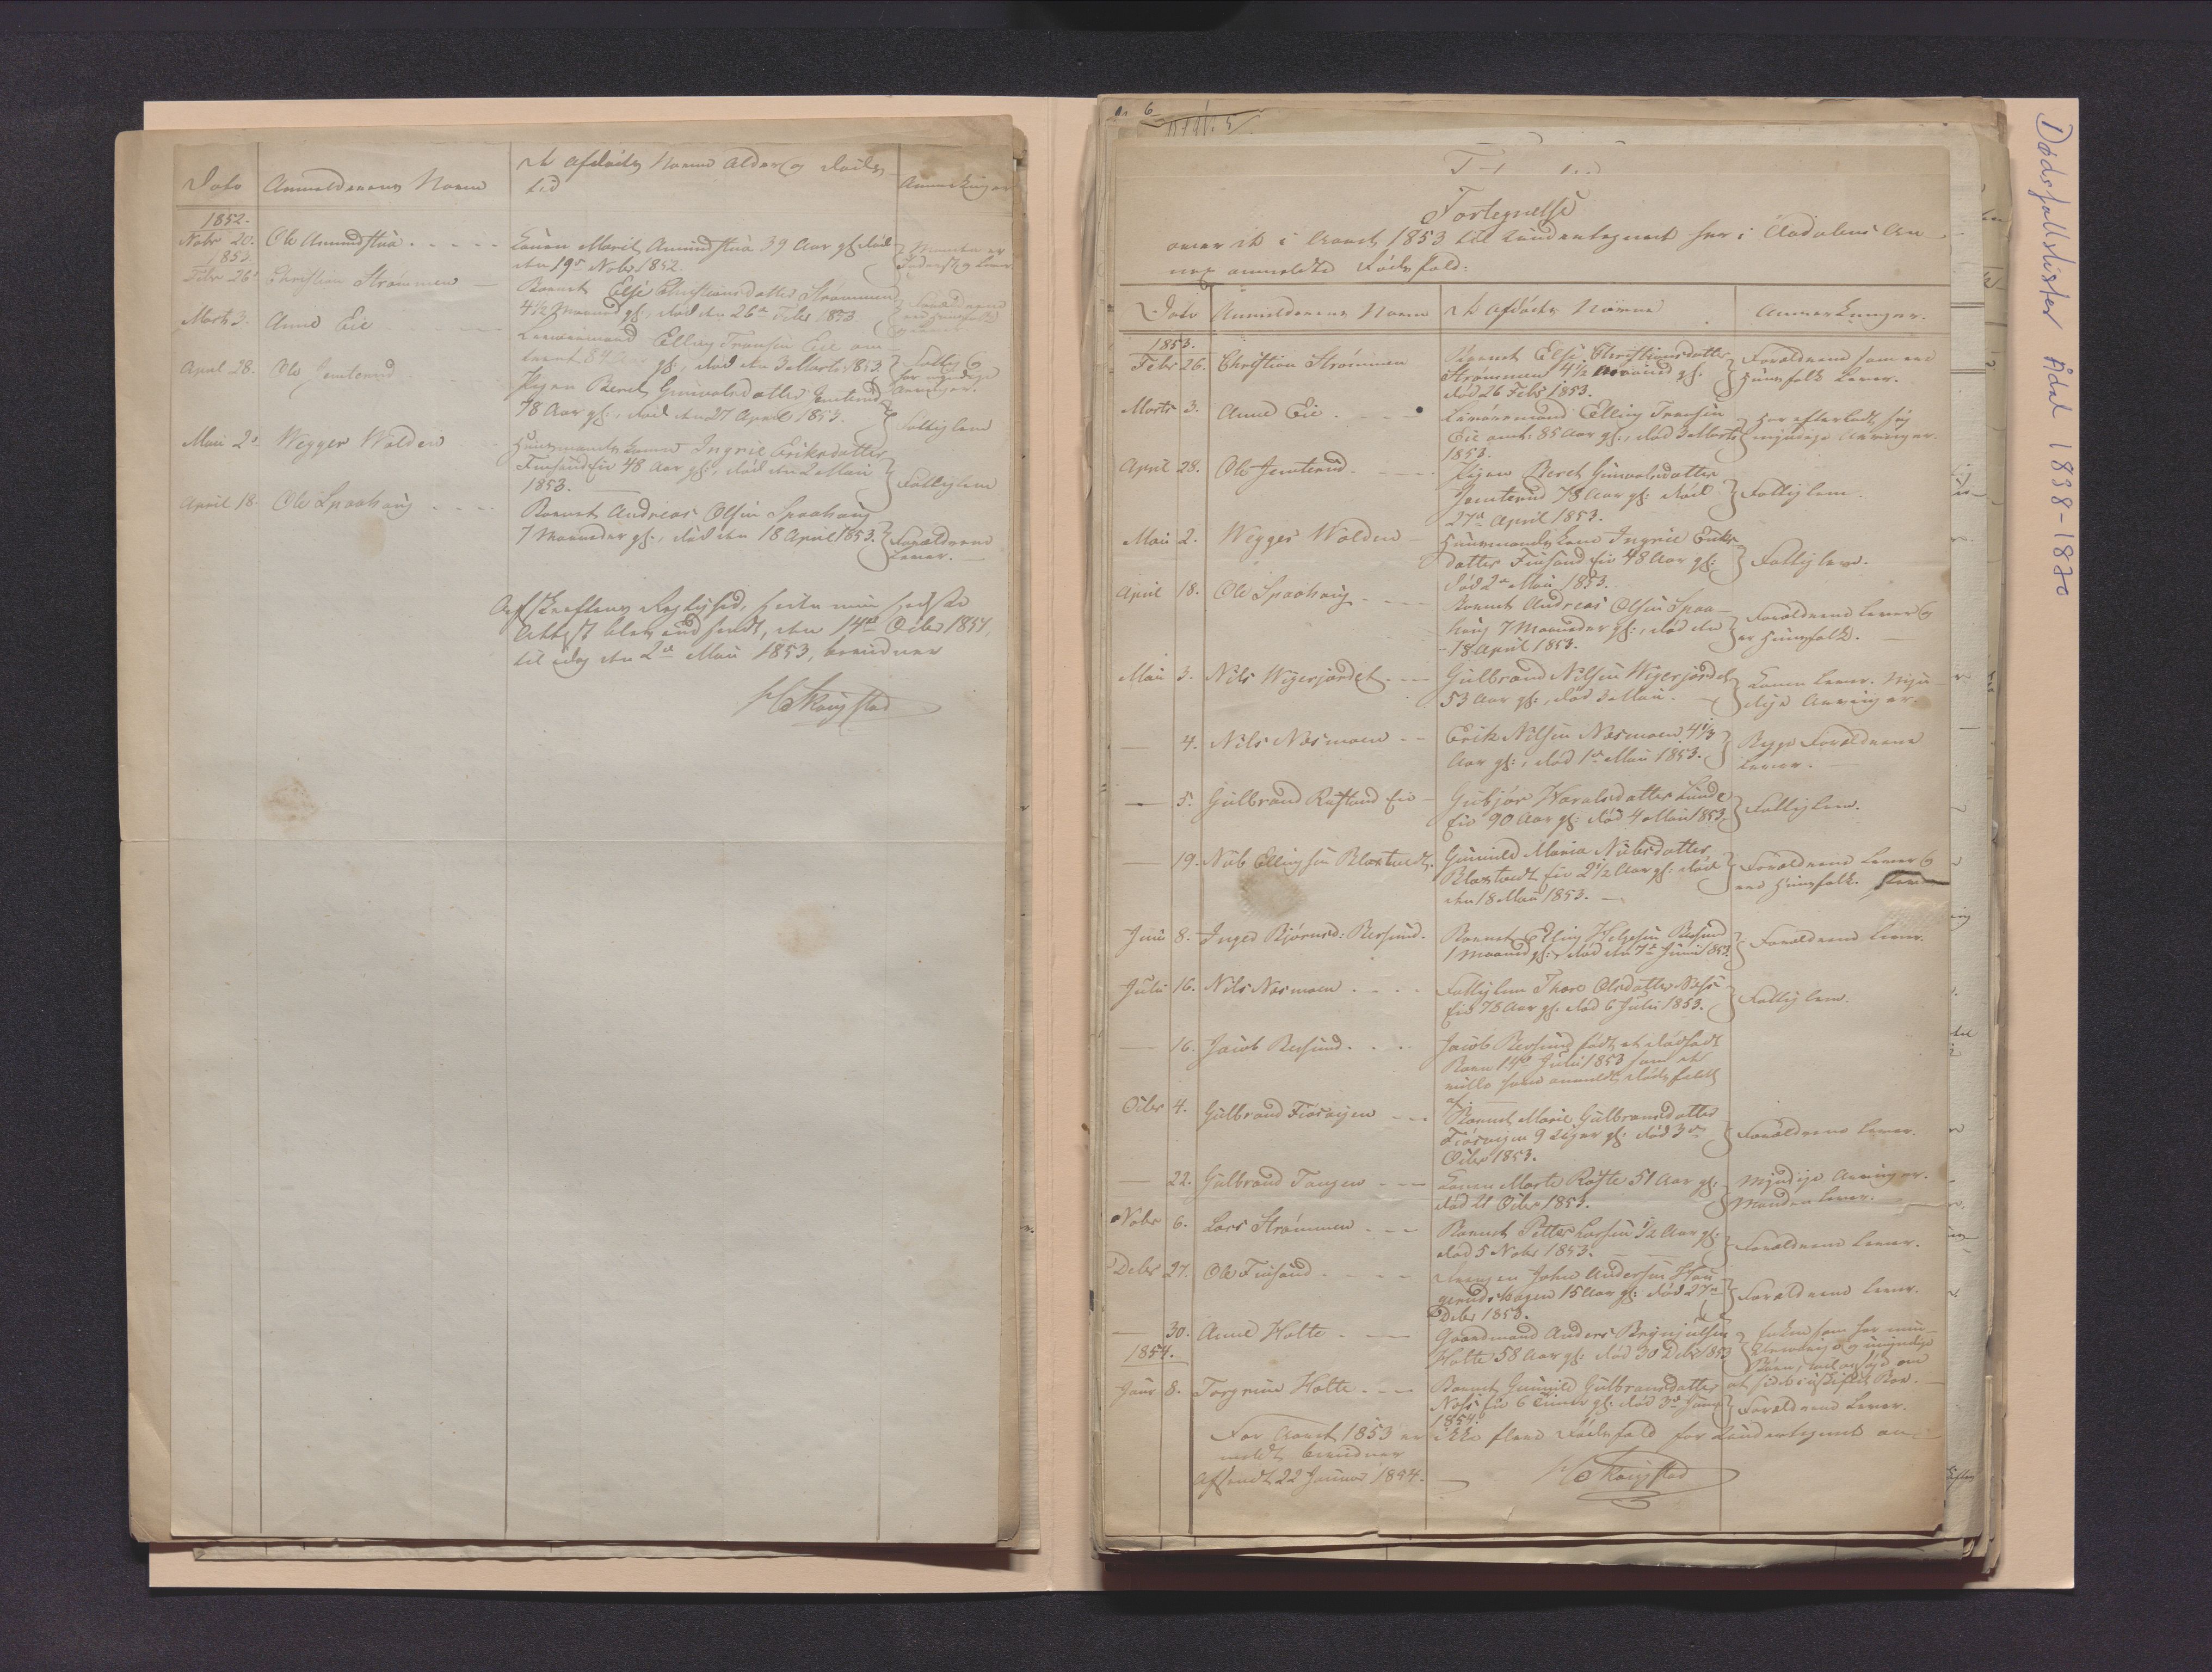 Dato
Anmelderens Navn
De Afdødes Navne Alder og Døds
tid
Anmerkninger
1852.
Nobr 20.
Ole Amundstua
Konen Marit Amundstua 39 Aar gl: død
den 19de Nobr 1852.
Manden er
1853.
Febr 26.
Christian Strømmen
Barnet Else Christiansdatter Strømmen
4 1/2 Maaned gl:, død den 26de Febr 1853.
Forældrene
ere Huusfolk
Marts 3.
Anne Eie
Livøremand Elling Fransen Eie om-
trent 84 Aar gl:, død den 3 Marts 1853.
Fattig og
har myndige
Arvinger.
April 28.
Ole Jemterud
Pigen Beret Gunvoldsdatter Jemterud
78 Aar gl:, død den 27 April 1853.
Fattiglem
Mai 2.
Wegger Wolden
Huusmands Kone Ingrie Eriksdatter
Finsand Eie 48 Aar gl:, død den 2 Mai
1853.
Fattiglem
April 18.
Ole Spaahaug
Barnet Andreas Olsen Spaahaug
7 Maaneder gl:, død den 18 April 1853.
Forældrene
Lever.
Afskriftens Rigtighed, siden min sidste
Attest blev indsendt, den 14de Octbr 1851,
til idag den 2de Mai 1853, bevidner
H O Skaugstad
Fortegnelse
over de i Aaret 1853 til Undertegnede her i Aadalens An
nex anmeldte Dødsfald:
Dato
Anmelderens Navn
De Afdødes Navne
Anmerkninger.
1853.
Febr 26.
Christian Strømmen
Barnet Else Christiansdatter
Strømmen 4 1/2 Maaned gl:
død 26 Febr 1853.
Forældrene som ere
Huusfolk Lever.
Marts 3.
Anne Eie
Livøremand Elling Fransen
Eie omt: 85 Aar gl:, død 3 Marts
1853.
Har efterladt sig
myndige Arvinger.
April 28.
Ole Jemterud
Pigen Beret Gunvoldsdatter
Jemterud 78 Aar gl: død
27de April 1853.
Fattiglem.
Mai 2.
Wegger Wolden
Huusmands Kone Ingrie Eriks
datter Finsand Eie 48 Aar gl:
død 2de Mai 1853.
Fattiglem.
April 18.
Ole Spaahaug
Barnet Andreas Olsen Spaa-
haug 7 Maaneder gl:, død den
18 April 1853.
Forældrene Lever og
er Huusfolk.
Mai 3.
Nils Wigerjordet
Gulbrand Nilsen Wigerjordet
53 Aar gl:, død 3 Mai.
Konen Lever. Myn
dige Arvinger.
— 4.
Nils Næsmoen
Erik Nilsen Næsmoen 4 1/3
Aar gl:, død 1de Mai 1853.
Begge Forældrene
Lever.
— 5.
Gulbrand Rustand Eie
Gubjør Haralsdatter Lunde
Eie 90 Aar gl: død 4 Mai 1853.
Fattiglem.
— 19.
Nub Ellingsen Blaxtvedt.
Gunnild Maria Nubsdatter
Blaxtvedt Eie 2 1/2 Aar gl: død
den 18 Mai 1853.
Forældrene Lever og
ere Huusfolk.
Juni 8.
Inged Bjørnsd: Bersund.
Barnet Elling Helgesen Bersund
1 Maaned gl:, død den 7de Juni 1853.
Forældrene Lever.
Juli 16.
Nils Næsmoen
Fattiglem Thore Olsdatter Næss
Eie 78 Aar gl. død 6 Juli 1853.
Fattiglem.
— 16.
Jacob Bersund
Jacob Bersund født et dødfødt
Barn 14de Juli 1853 som det
anmeldt Dødsfald
af
Octbr 4.
Gulbrand Fiøsvigen
Barnet Marie Gulbrandsdatter
Fiøsvigen 9 Uger gl: død 3de
Octbr 1853.
Forældrene Lever.
— 22.
Gulbrand Tangen
Konen Marte Røste 51 Aar gl.
død 21 Octbr 1853.
Myndige Arvinger.
Manden Lever.
Nobr 6.
Lars Strømmen
Barnet Petter Larsen 1/2 Aar gl:
død 5 Nobr 1853.
Forældrene Lever.
Debr 27.
Ole Finsand
Drengen John Andersen Hau
gerudshagen 15 Aar gl: død 27de
Debr 1853.
Forældrene Lever.
— 30.
Anne Holte
Gaardmand Anders Brynjulfsen
Holte 58 Aar gl: død 30 Debr 1853
Enken som har
og umyndige
Børn,
at sidde i uskiftet Boe.
1854.
Janr 8.
Torgrim Holte
Barnet Gunnild Gulbrandsdatter
Næss Eie 6 Timer gl: død 3de Janr
1854.
Forældrene Lever.
For Aaret 1853 er ikke flere Dødsfald for Undertegnede an-
meldt bevidner
Afsendt 22 Januar 1854.
H O Skaugstad
Dødsfallslister Ådal 1838-1870